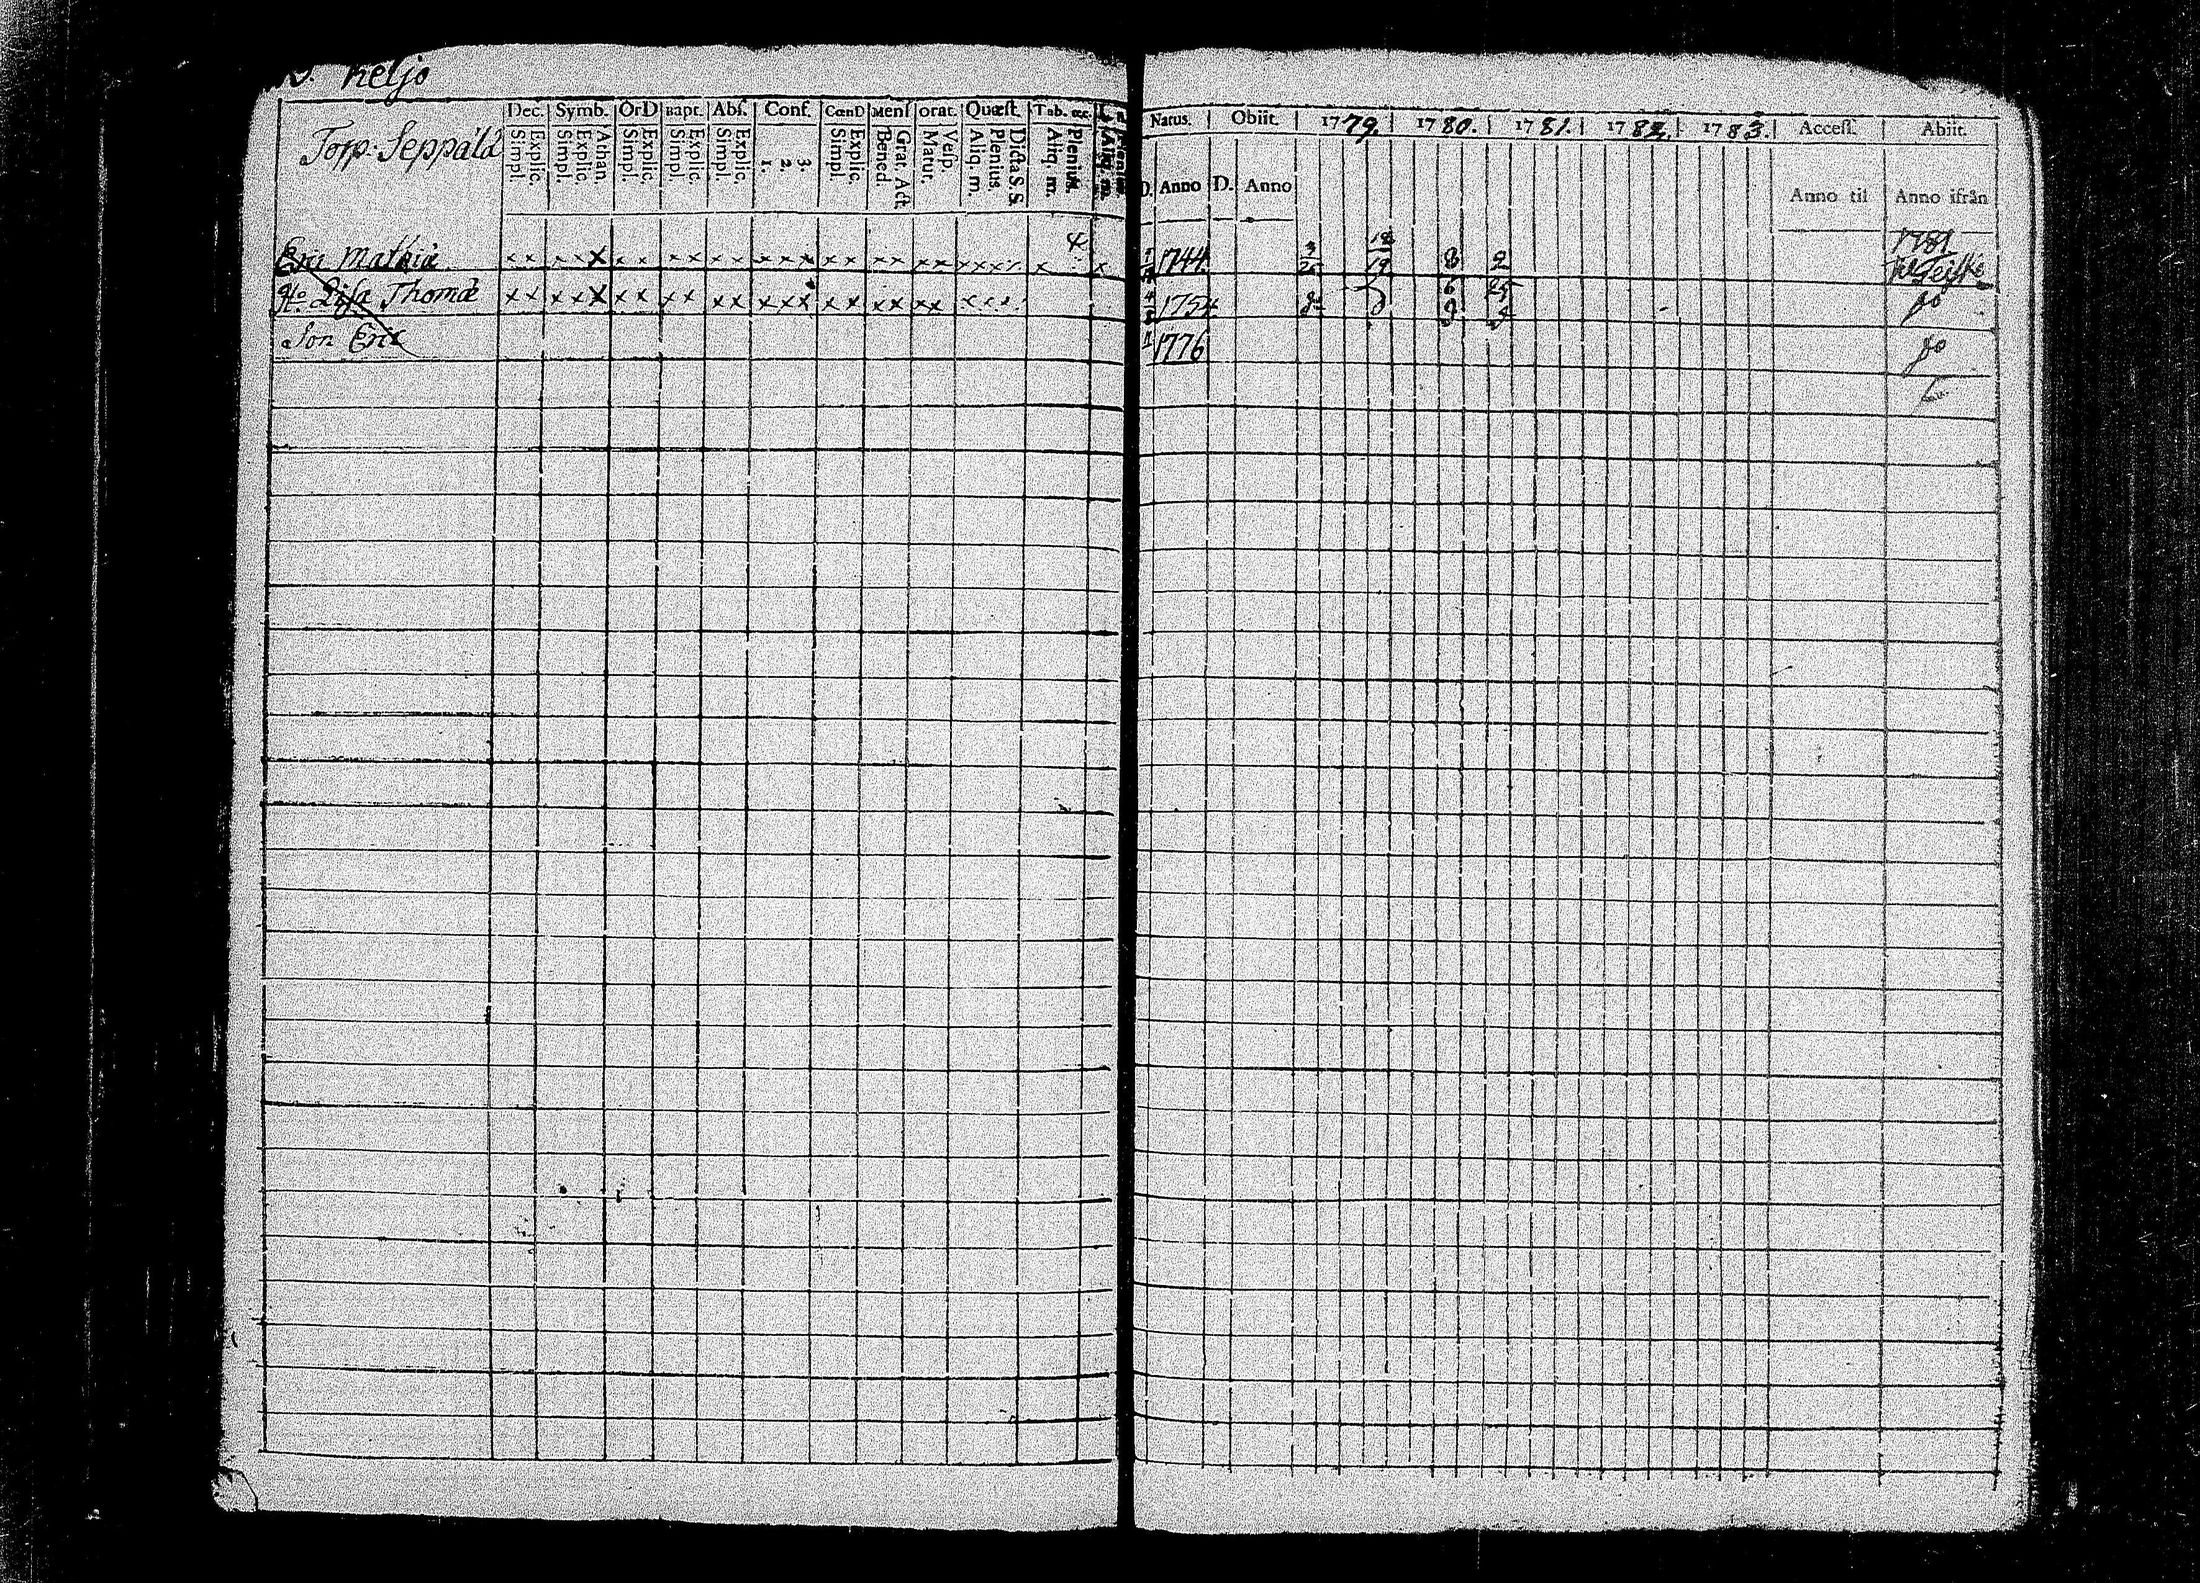 Neljo
Dec. Symb. OrD Bapt. Abſ. Conf. CœnD Menſ orat. Quæſt. Tab. œc. Natus. Obiit. 1779. 1780. 1781. 1782. 1783. Acceſſ. Abiit.
Torp. Seppälä
Explic. Simpl. Athan. Explic. Simpl. Explic. Simpl. Explic. Simpl. Explic. Simpl. 3. 2. 1. Explic. Simpl. Grat. Act Bened. Veſp. Matur. Dicta S. S. Plenius. Aliq. m. Plenius. Aliq. m. Plenius Aliq. m.
D. Anno D. Anno Anno til Anno ifrån
Eric Mathiæ x x x x x x x x x x x x x x x x x x x x x x x x x x 1744 3/20 18/19 8 2 1781
Ho Lisa Thomæ x x x x x x x x x x x x x x x x x x x x x x x 1754 do 6 25 do
Son Eric 1776 do